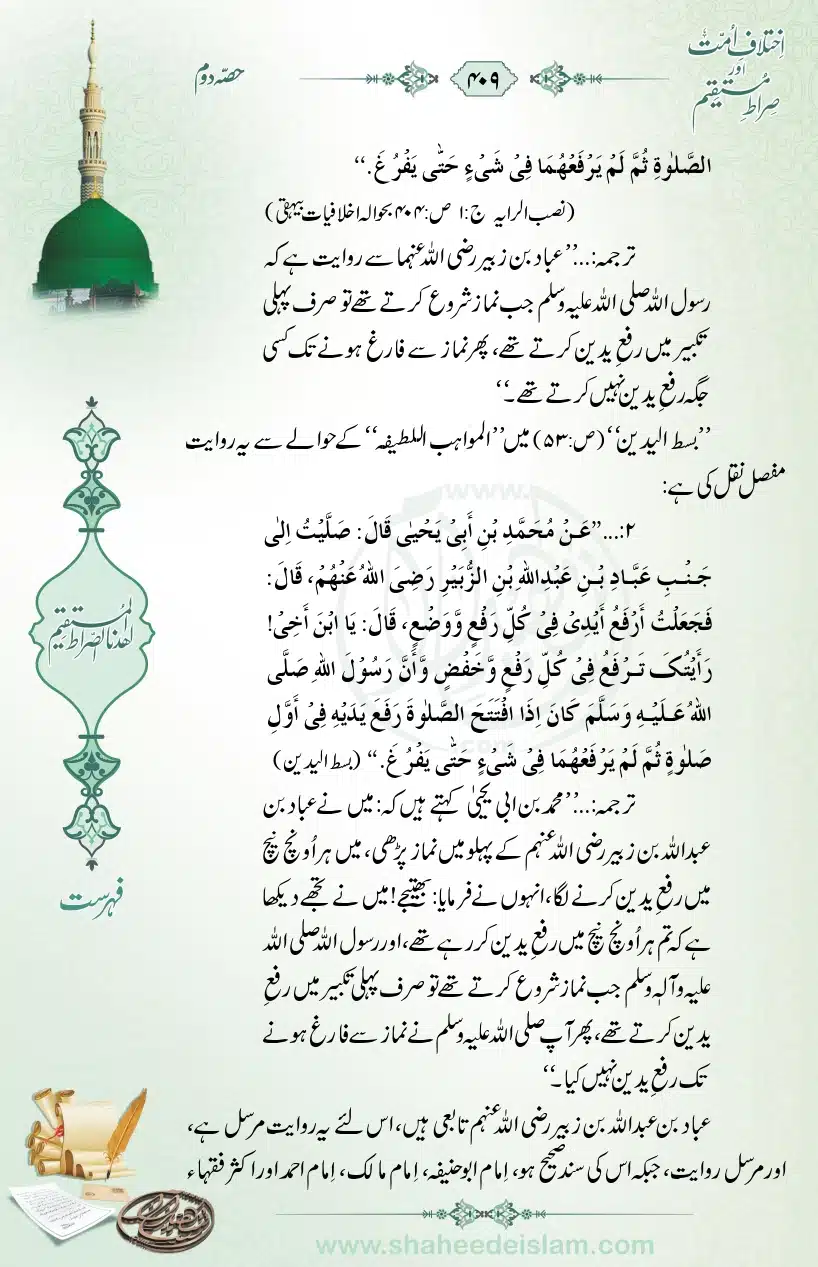 اِختلافِ اُمّت
اور
صراطِ مُستقیم
۴۰۹
حصّہ دوم
الصَّلٰوةِ ثُمَّ لَمْ يَرْفَعْهُمَا فِىْ شَىْءٍ حَتّٰى يَفْرُغَ.‘‘
(نصب الرایہ ج:۱ ص:۴۰۴ بحوالہ اخلافیات بیہقی)
ترجمہ:...’’عباد بن زبیر رضی اللہ عنہما سے روایت ہے کہ
رسول اللہ صلی اللہ علیہ وسلم جب نماز شروع کرتے تھے تو صرف پہلی
تکبیر میں رفعِ یدین کرتے تھے، پھر نماز سے فارغ ہونے تک کسی
جگہ رفعِ یدین نہیں کرتے تھے۔‘‘
’’بسط الیدین‘‘ (ص:۵۳) میں ’’المواہب اللطیفہ‘‘ کے حوالے سے یہ روایت
مفصل نقل کی ہے:
۲:...’’عَنْ مُحَمَّدِ بْنِ أَبِىْ يَحْيٰى قَالَ: صَلَّيْتُ اِلٰى
جَنْبِ عَبَّادِ بْنِ عَبْدِاللهِ بْنِ الزُّبَيْرِ رَضِىَ اللهُ عَنْهُمْ، قَالَ:
فَجَعَلْتُ أَرْفَعُ أَيْدِىْ فِىْ كُلِّ رَفْعٍ وَّوَضْعٍ، قَالَ: يَا ابْنَ أَخِىْ!
رَأَيْتُكَ تَرْفَعُ فِىْ كُلِّ رَفْعٍ وَّخَفْضٍ وَّأَنَّ رَسُوْلَ اللهِ صَلَّى
اللهُ عَلَيْهِ وَسَلَّمَ كَانَ اِذَا افْتَتَحَ الصَّلٰوةَ رَفَعَ يَدَيْهِ فِىْ أَوَّلِ
صَلٰوةٍ ثُمَّ لَمْ يَرْفَعْهُمَا فِىْ شَىْءٍ حَتّٰى يَفْرُغَ.‘‘ (بسط الیدین)
ترجمہ:...’’محمد بن ابی یحییٰ کہتے ہیں کہ: میں نے عباد بن
عبداللہ بن زبیر رضی اللہ عنہم کے پہلو میں نماز پڑھی، میں ہر اُونچ نیچ
میں رفعِ یدین کرنے لگا، انہوں نے فرمایا: بھتیجے! میں نے تجھے دیکھا
ہے کہ تم ہر اُونچ نیچ میں رفعِ یدین کر رہے تھے، اور رسول اللہ صلی اللہ
علیہ وآلہٖ وسلم جب نماز شروع کرتے تھے تو صرف پہلی تکبیر میں رفعِ
یدین کرتے تھے، پھر آپ صلی اللہ علیہ وسلم نے نماز سے فارغ ہونے
تک رفعِ یدین نہیں کیا۔‘‘
عباد بن عبداللہ بن زبیر رضی اللہ عنہم تابعی ہیں، اس لئے یہ روایت مرسل ہے،
اور مرسل روایت، جبکہ اس کی سند صحیح ہو، اِمام ابوحنیفہ، اِمام مالک، اِمام احمد اور اکثر فقہاء
اِھْدِنَا الصِّرَاطَ الْمُسْتَقِيْمَ
فہرست
www.shaheedeislam.com